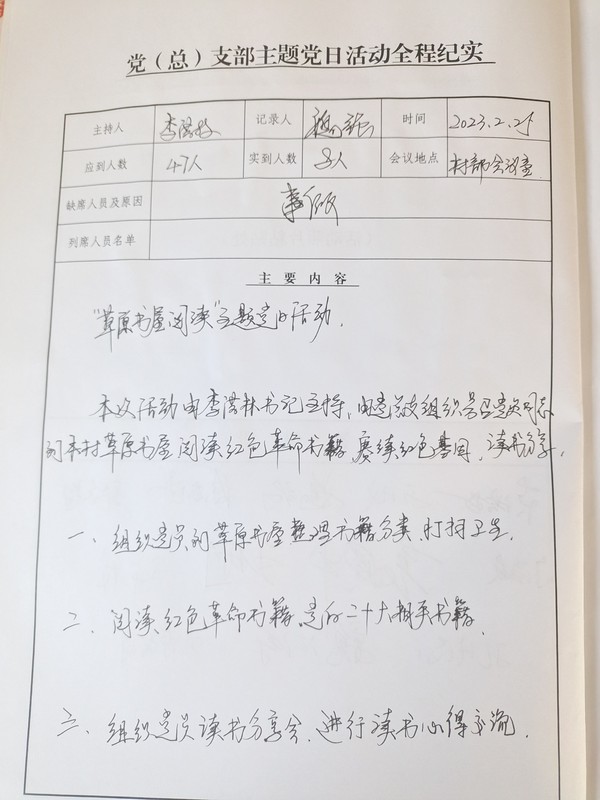 党（总）支部主题党日活动全程纪实
主持人 李洪林 记录人 时间 2023.2.25
应到人数 47人 实到人数 8人 会议地点 村部会议室
缺席人员及原因 事假
列席人员名单
主要内容
“草原书屋阅读”主题党日活动.
本次活动由李洪林书记主持,由党总支组织号召党员同志
到本村草原书屋阅读红色革命书籍,赓续红色基因,读书分享.
一、组织党员到草原书屋整理书籍分类,打扫卫生.
二、阅读红色革命书籍,党的二十大相关书籍.
三、组织党员读书分享会,进行读书心得交流.